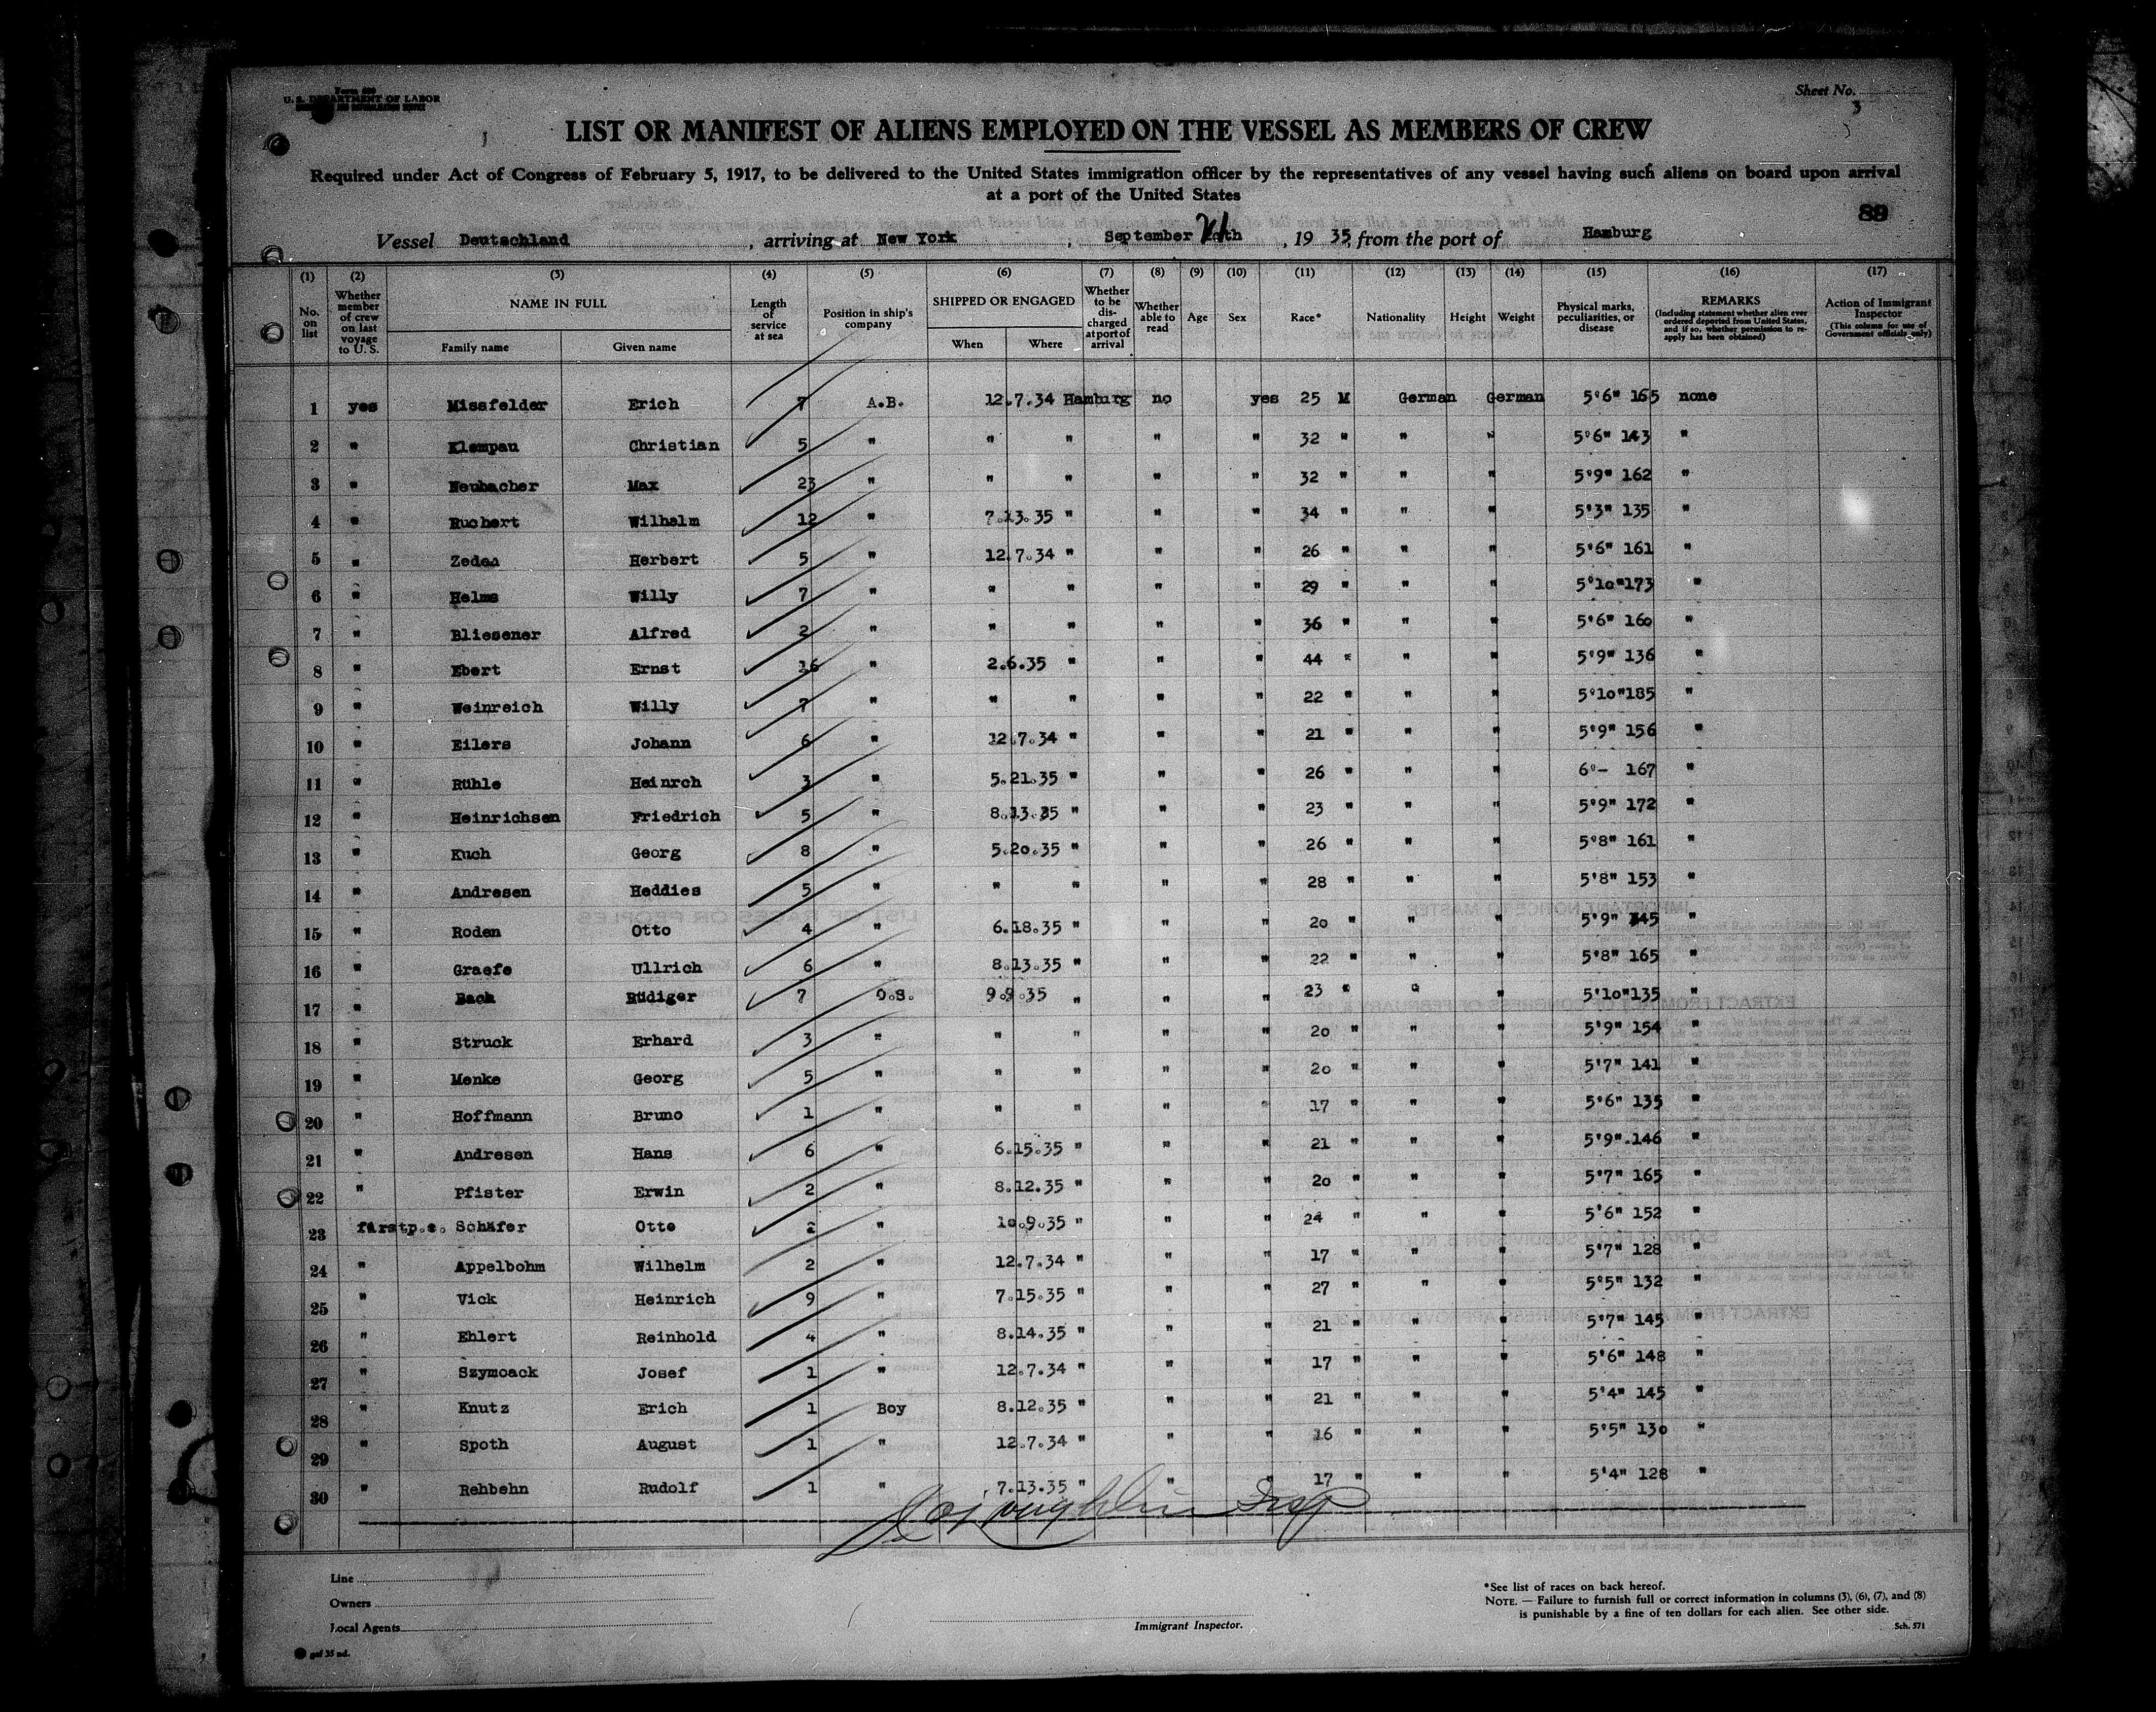 Form 680
U. S. DEPARTMENT OF LABOR
Sheet No.
3
LIST OR MANIFEST OF ALIENS EMPLOYED ON THE VESSEL AS MEMBERS OF CREW
Required under Act of Congress of February 5, 1917, to be delivered to the United States immigration officer by the representatives of any vessel having such aliens on board upon arrival
at a port of the United States
89
Vessel Deutschland, arriving at New York, September 21th, 1935, from the port of Hamburg
(1) (2) (3) (4) (5) (6) (7) (8) (9) (10) (11) (12) (13) (14) (15) (16) (17)
No. on list
Whether member of crew on last voyage to U. S.
NAME IN FULL
Family name
Given name
Length of service at sea
Position in ship's company
SHIPPED OR ENGAGED
When
Where
Whether to be discharged at port of arrival
Whether able to read
Age
Sex
Race*
Nationality
Height
Weight
Physical marks, peculiarities, or disease
REMARKS
(Including statement whether alien ever ordered deported from United States, and if so, whether permission to reapply has been obtained)
Action of Immigrant Inspector
(This column for use of Government officials only)
1 yes Missfelder Erich 7 A.B. 12.7.34 Hamburg no yes 25 M German German 5'6" 165 none
2 " Klempau Christian 5 " " " " " 32 " " " 5'6" 143 "
3 " Neubacher Max 23 " " " " " 32 " " " 5'9" 162 "
4 " Ruchert Wilhelm 12 " 7.13.35 " " " 34 " " " 5'3" 135 "
5 " Zeden Herbert 5 " 12.7.34 " " " 26 " " " 5'6" 161 "
6 " Helms Willy 7 " " " " " 29 " " " 5'10" 173 "
7 " Bliesener Alfred 2 " " " " " 36 " " " 5'6" 160 "
8 " Ebert Ernst 16 " 2.6.35 " " " 44 " " " 5'9" 136 "
9 " Weinreich Willy 7 " " " " " 22 " " " 5'10" 185 "
10 " Eilers Johann 6 " 12.7.34 " " " 21 " " " 5'9" 156 "
11 " Rühle Heinrch 3 " 5.21.35 " " " 26 " " " 6'- 167 "
12 " Heinrichsen Friedrich 5 " 8.13.35 " " " 23 " " " 5'9" 172 "
13 " Kuch Georg 8 " 5.20.35 " " " 26 " " " 5'8" 161 "
14 " Andresen Heddies 5 " " " " " 28 " " " 5'8" 153 "
15 " Roden Otto 4 " 6.18.35 " " " 20 " " " 5'9" 145 "
16 " Graefe Ullrich 6 " 8.13.35 " " " 22 " " " 5'8" 165 "
17 " Bach Rüdiger 7 O.S. 9.9.35 " " " 23 " " " 5'10" 135 "
18 " Struck Erhard 3 " " " " " 20 " " " 5'9" 154 "
19 " Menke Georg 5 " " " " " 20 " " " 5'7" 141 "
20 " Hoffmann Bruno 1 " " " " " 17 " " " 5'6" 135 "
21 " Andresen Hans 6 " 6.15.35 " " " 21 " " " 5'9" 146 "
22 " Pfister Erwin 2 " 8.12.35 " " " 20 " " " 5'7" 165 "
23 Schäfer Otto 2 " 10.9.35 " " " 24 " " " 5'6" 152 "
24 " Appelbohm Wilhelm 2 " 12.7.34 " " " 17 " " " 5'7" 128 "
25 " Vick Heinrich 9 " 7.15.35 " " " 27 " " " 5'5" 132 "
26 " Ehlert Reinhold 4 " 8.14.35 " " " 21 " " " 5'7" 145 "
27 " Szymoack Josef 1 " 12.7.34 " " " 17 " " " 5'6" 148 "
28 " Knutz Erich 1 Boy 8.12.35 " " " 21 " " " 5'4" 145 "
29 " Spoth August 1 " 12.7.34 " " " 16 " " " 5'5" 130 "
30 " Rehbehn Rudolf 1 " 7.13.35 " " " 17 " " " 5'4" 128 "
Line
Owners
Local Agents
Immigrant Inspector.
*See list of races on back hereof.
NOTE. — Failure to furnish full or correct information in columns (3), (6), (7), and (8)
is punishable by a fine of ten dollars for each alien. See other side.
Sch. 571